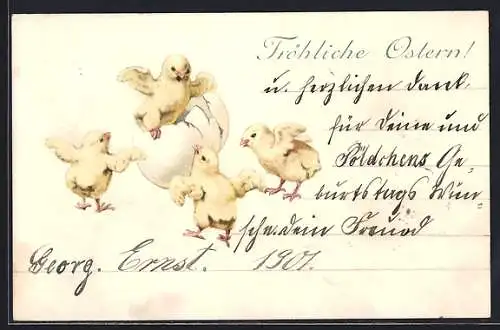 Fröhliche Ostern!
u. herzlichen Dank
für Deine und
Pöldchens Ge-
burtstags Wün-
sche. dein Freund
Georg. Ernst. 1901.